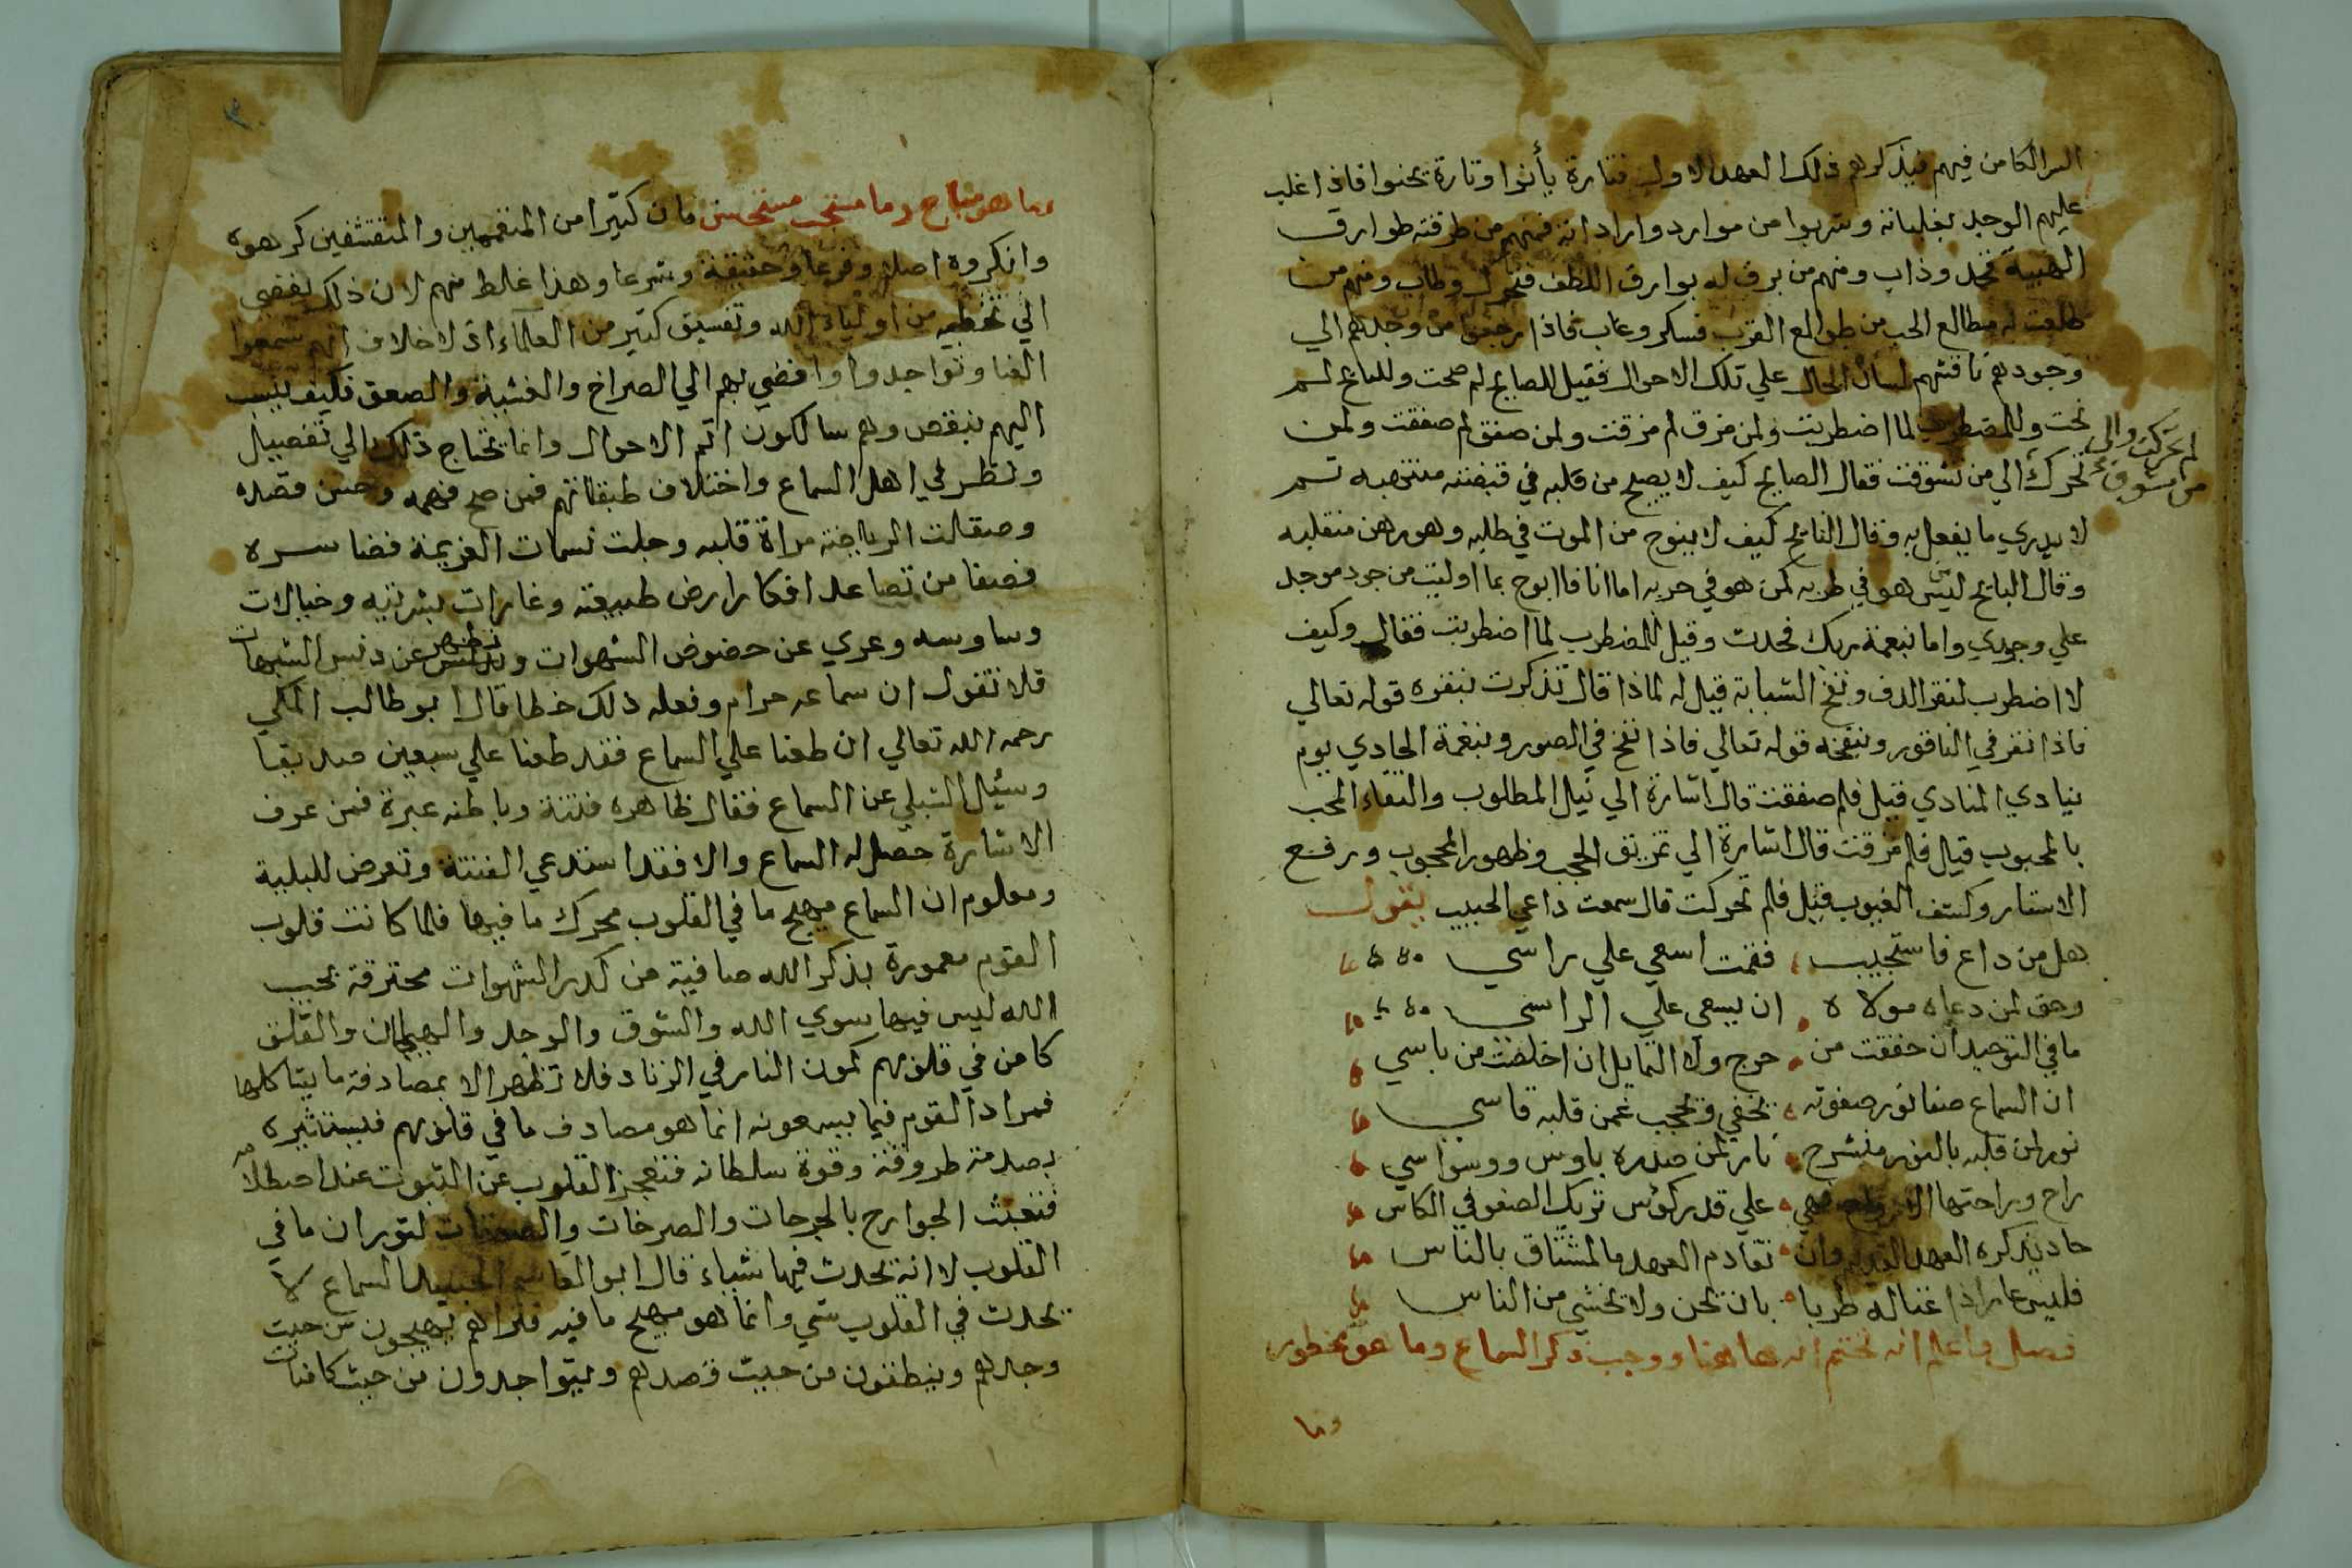 السر الكامن فيهم فيذكرهم ذلك العهد الاول فتارة يأنوا وتارة يحنوا فاذا غلب
عليهم الوجد بغلباته وشربوا من موارد واراداته فمنهم من طرقته طوارق
الهيبة فخد وذاب ومنهم من برق له بوارق اللطف فتحرك وطاب ومنهم من
طلعت له مطالع الحب من طوالع القرب فسكر وغاب فاذا رجعوا من وجدهم الي
وجودهم ناقشهم لسان الحال علي تلك الاحوال فقيل للصايح لم صحت وللنايح لم
نحت وللمضطرب لما اضطربت ولمن مزق لم مزقت ولمن صفق لم صفقت ولمن
تحرك الي من تشوقت فقال الصايح كيف لا يصيح من قلبه في قبضته منتهبه ثم
لم تحركت والي
من تشوق
لا يدري ما يفعل به وقال النايح كيف لا ينوح من الموت في طلبه وهو رهن منقلبه
وقال البايح ليس هو في طربه كمن هو في حربه اما انا فاابوح بما اوليت من جود موجد
علي وجودي واما بنعمة ربك فحدث وقيل للمضطرب لما اضطربت فقال وكيف
لا اضطرب لنقر الدف ونفخ الشبابة قيل له لماذا قال تذكرت بنقره قوله تعالي
فاذا نقر في الناقور وبنفخه قوله تعالي فاذا نفخ في الصور وبنغمة الحادي يوم
ينادي المنادي قيل فلم صفقت قال اشارة الي نيل المطلوب والتقاء المحب
بالمحبوب قيل فلم مزقت قال اشارة الي تمزيق الحجب وظهور المحجوب ورفع
الاستار وكشف الغيوب قيل فلم تحركت قال سمعت داعي الحبيب يقول
هل من داع فاستجيب فقمت اسعي علي راسي
وحق لمن دعاه مولاه ان يسعي علي الراسي
ما في التوحيد ان حققت من حرج ولا التمايل ان اخلصت من باسي
ان السماع صفا نور صفوته تخفي وتحجب عمن قلبه قاسي
نور لمن قلبه بالنور منشرح نار لمن صدره باوس ووسواسي
راح وراحتها الارواح فهي علي قدر كؤس تريك الصفو في الكاس
حاد يذكره العهد القديم وان تقادم العهد ما المشتاق بالناس
فليس عار اذا غنا له طربا بان يحن ولا يخشي من الناس
فصل واعلم انه تختم انه هاهنا ووجب ذكر السماع وما هو محظور
وما
وما هو مباح وما مستحب مستحسن فان كثيرا من المتفقهين والمتقشفين كرهوه
وانكروه اصلا وفرعا وحقيقة وشرعا وهذا غلط منهم لان ذلك يفضي
الي تخطية من اولياء الله وتفسيق كثير من العلماء اذ لا خلاف انهم سمعوا
الغنا وتواجدوا وافضي بهم الي الصراخ والغشية والصعق فكيف ينسب
اليهم نبقص وهم سالكون اتم الاحوال وانما يحتاج ذلك الي تفصيل
ونظر في اهل السماع واختلاف طبقاتهم فمن صح فهمه وحسن قصده
وصقالت الرياضه مراة قلبه وجلت نسمات العزيمة فضا سره
فصفا من تصاعد افكار ارض طبيعته وغارات بشريته وخيالات
وساوسه وعري عن حضوض الشهوات وتطهر عن دنس الشبهات
فلا نقول ان سماعه حرام وفعله ذلك خطا قال ابو طالب المكي
رحمه الله تعالي ان طعنا علي السماع فقد طعنا علي سبعين صديقا
وسئيل الشبلي عن السماع فقال ظاهره فتنة وباطنه عبرة فمن عرف
الاشارة حصل له السماع والا فقد استدعي الفتنة وتعرض للبلية
ومعلوم ان السماع مهيج ما في القلوب محرك ما فيها فلما كانت قلوب
القوم معمورة بذكر الله صافية من كدر الشهوات محترقة بحب
الله ليس فيها سوي الله والشوق والوجد والهيمان والقلق
كامن في قلوبهم كمون النار في الزناد فلا تظهر الا بمصادفة ما يشاكلها
فمراد القوم فيما يسمعونه انما هو مصادف ما في قلوبهم فيستثيره
بصدمة طروقة وقوة سلطانه فتعجز القلوب عن الثبوت عند اصطلامه
فتعبث الجوارح بالجرحات والصرخات والصعقات لثوران ما في
القلوب لا انه يحدث فيها شياء قال ابو القاسم الجنيد السماع لا
يحدث في القلوب شي وانما هو مهيج ما فيه فتراهم يهيجون من حيث
وجدهم وينطقون من حيث قصدهم ويتواجدون من حيث كامنات